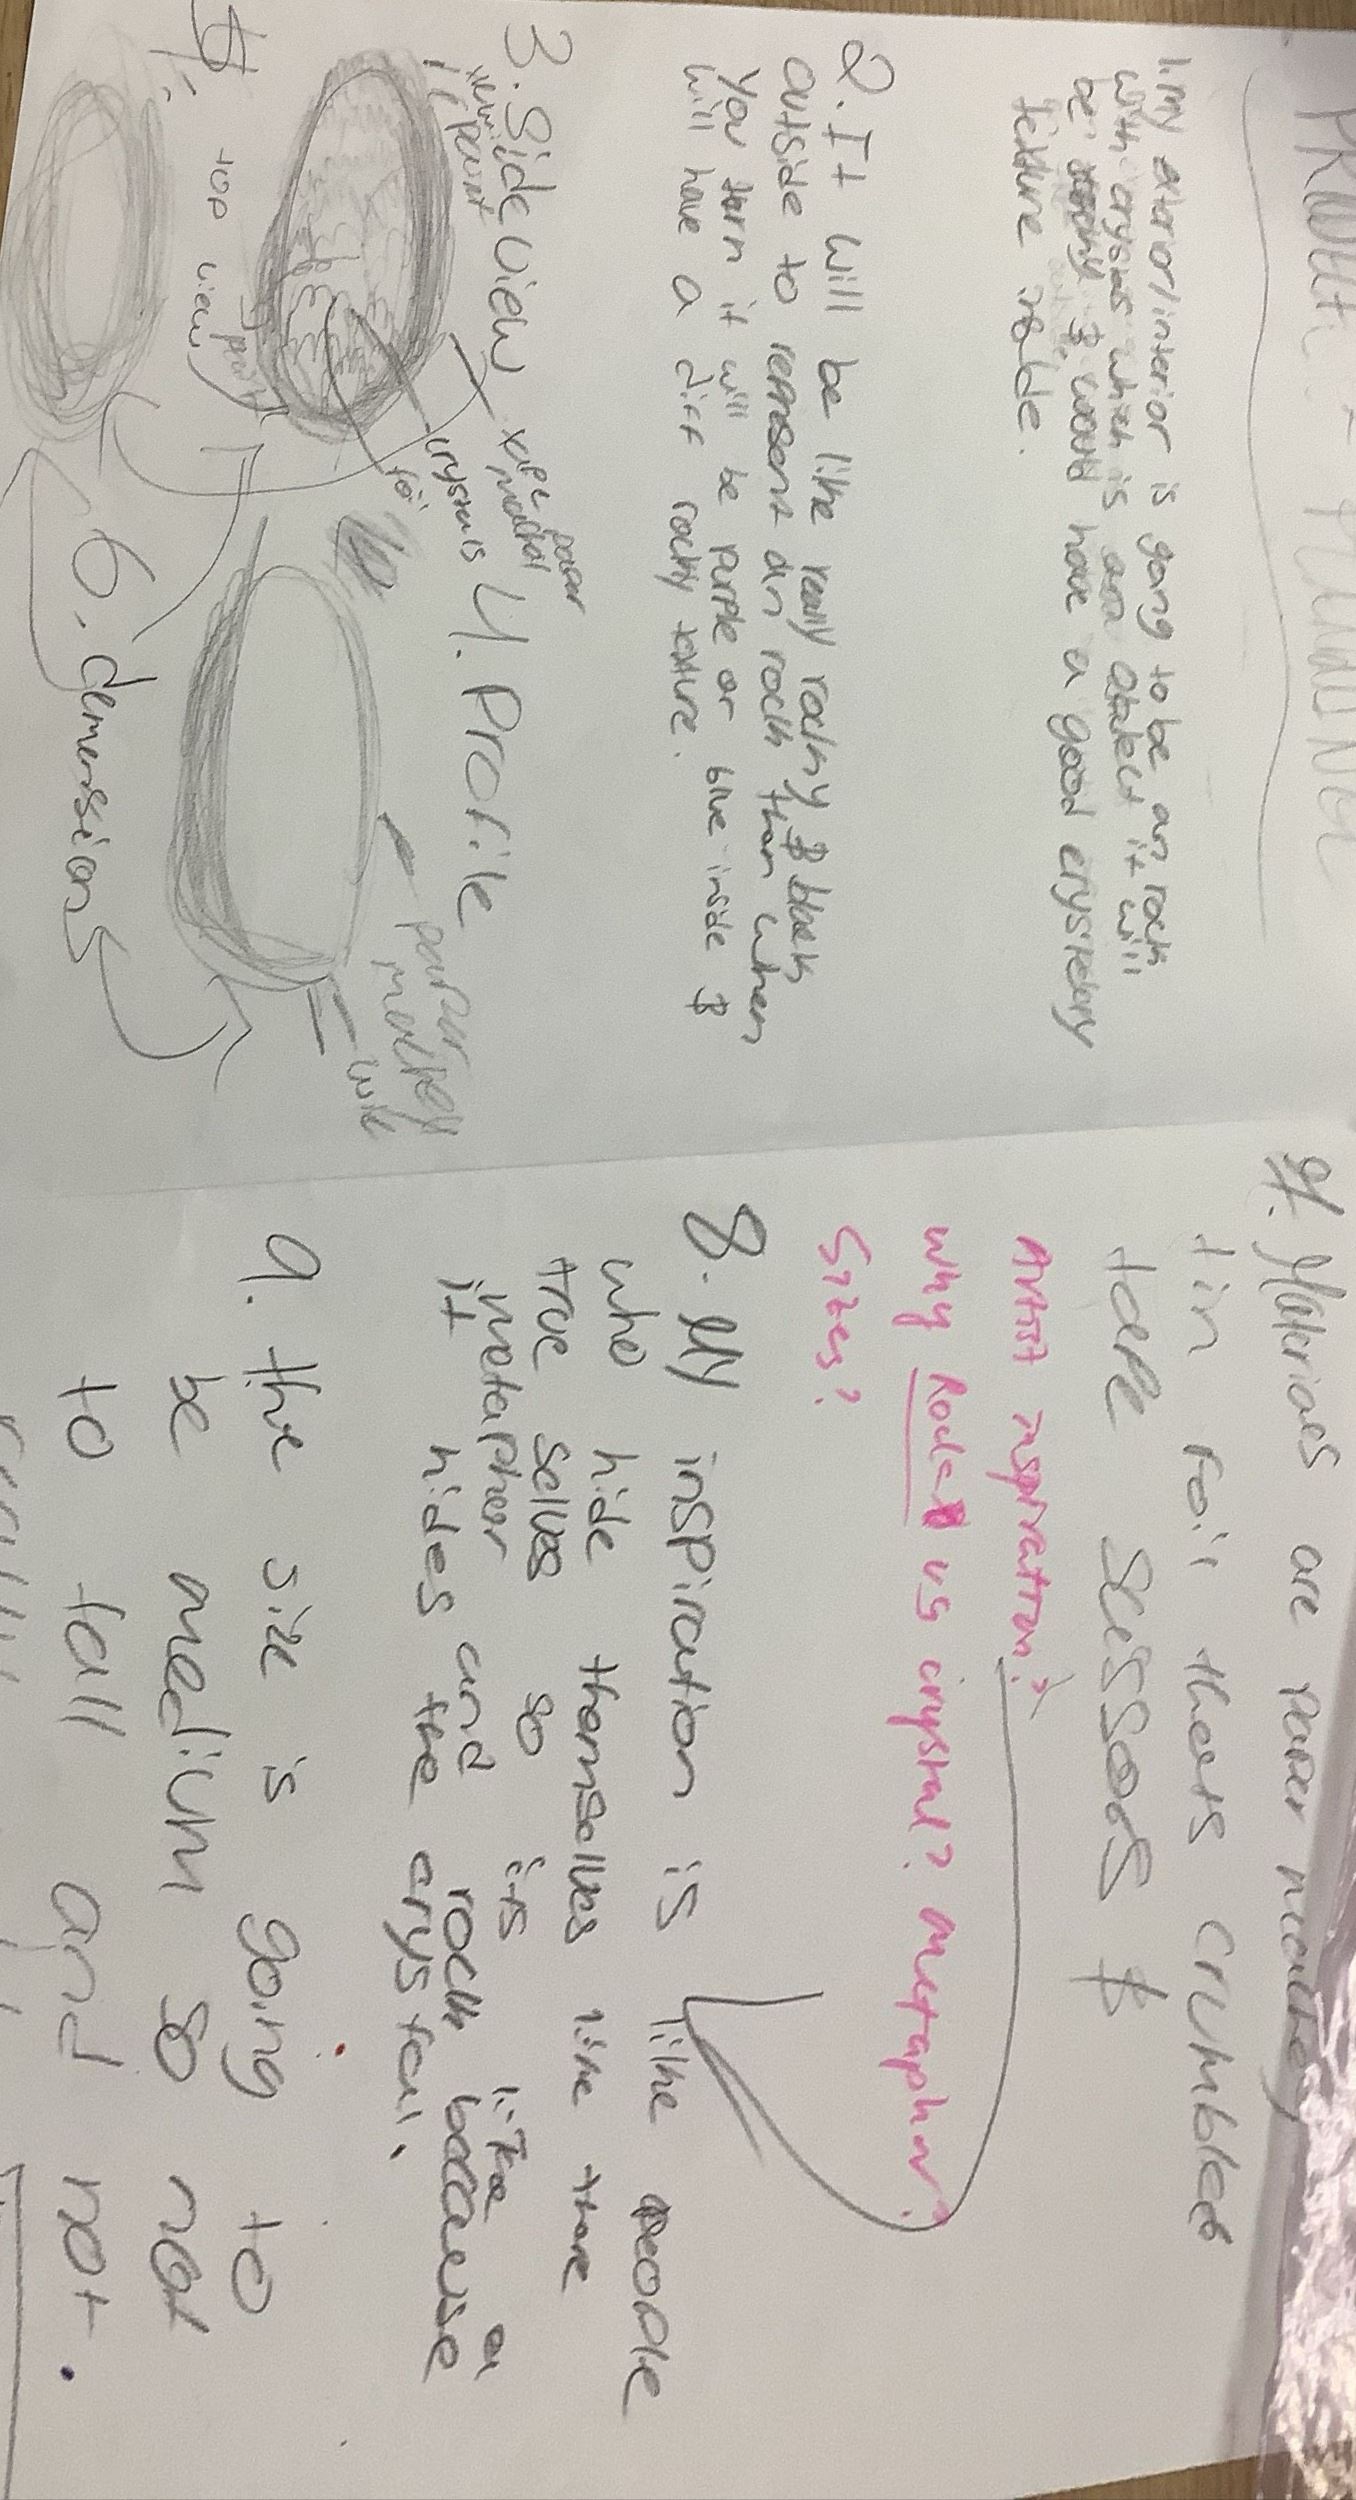 1. my exterior/interior is going to be an rock
with crystals which is and it will
be & would have a good crystaly
texture
2. It will be like really rocky & black
outside to represent an rock than when
you turn it will be purple or blue inside &
will have a diff rocky texture.
3. Side view
paper
crystals
foil
paint
4. Profile
paper
top view
6. demerssions
Materials are paper
tin foil thats crumbled
tape scissors &
Artist inspiration?
why Rock vs crystal? metaphor?
Sizes?
8. My inspiration is like people
who hide themsolves like there
true selves so its like a
metapher and rock beccause
it hides the crystal.
9. the size is going to
be medium so not
to tall and not